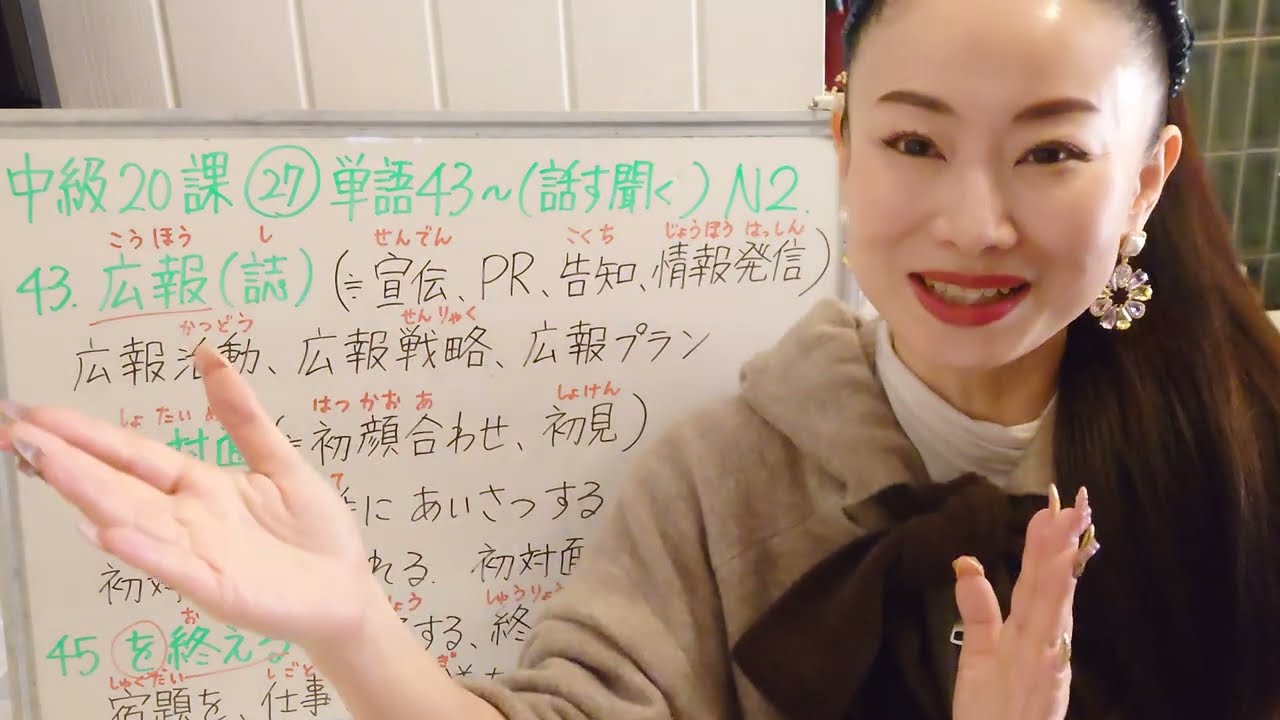 中級20課㉗単語43~(話す聞く)N2.
こうほう し せんでん こくち じょうほう はっしん
43. 広報(誌)(≒宣伝、PR、告知、情報発信)
かつどう せんりゃく
広報活動、広報戦略、広報プラン
しょ たい はつ かお あ しょけん
対面 初顔合わせ、初見)
て
にあいさつする
初対 れる. 初対面
お しゅうりょう
45 を終える する、終
しゅくだい しごと
宿題を、仕事